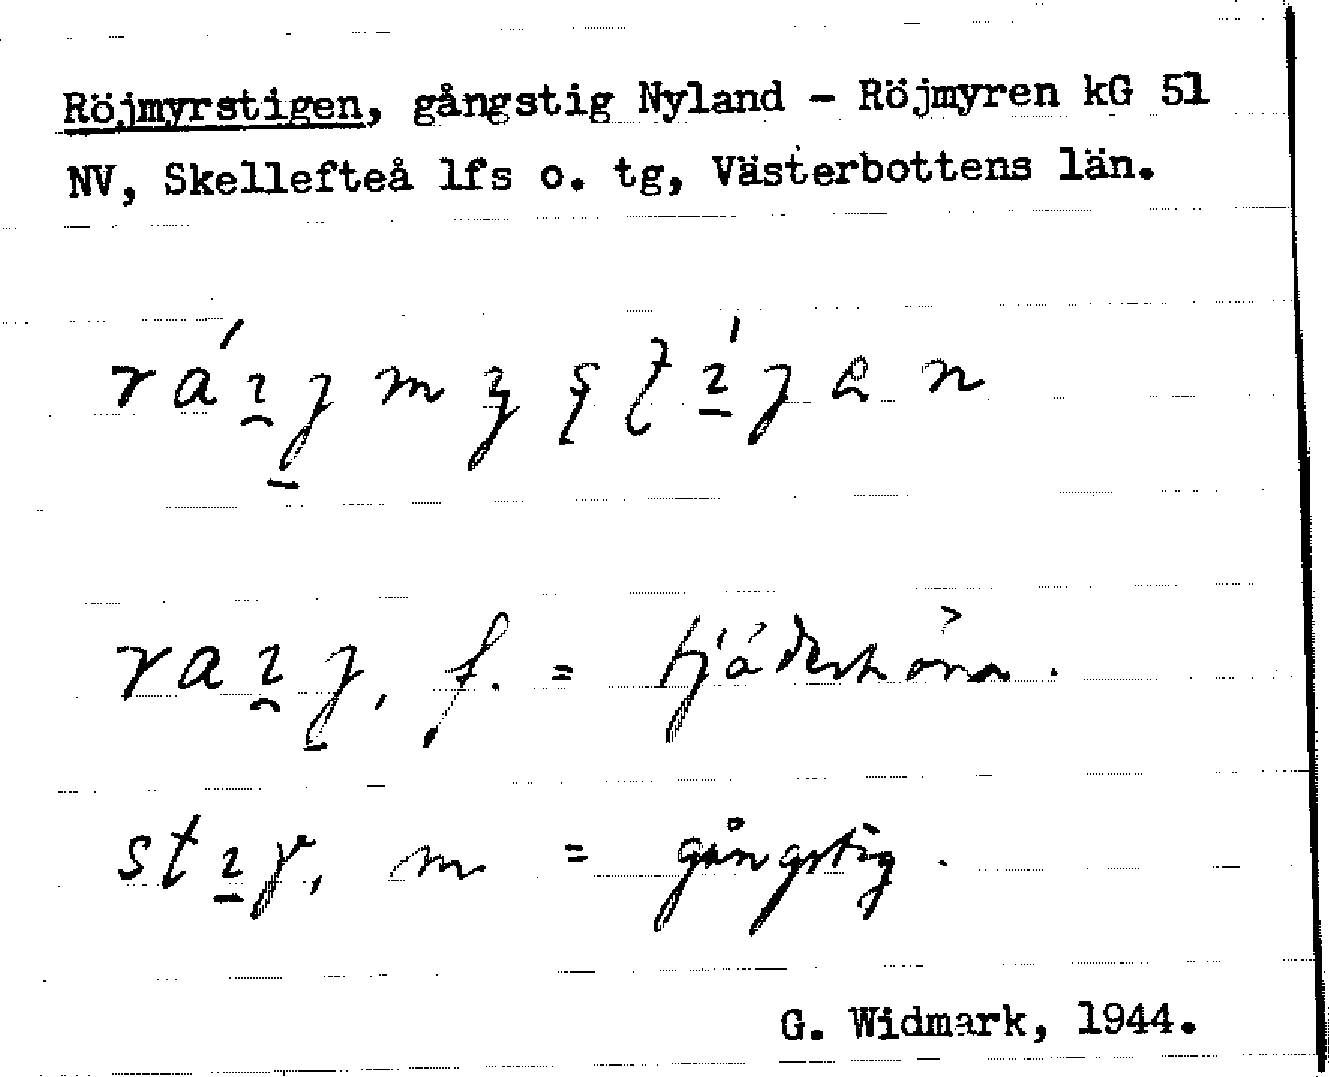 Röjmyrstigen, gångstig Nyland - Röjmyren kG 51
NV, Skellefteå lfs o. tg, Västerbottens län.
f. = tjäderhöna.
m = gångstig.
G. Widmark, 1944.